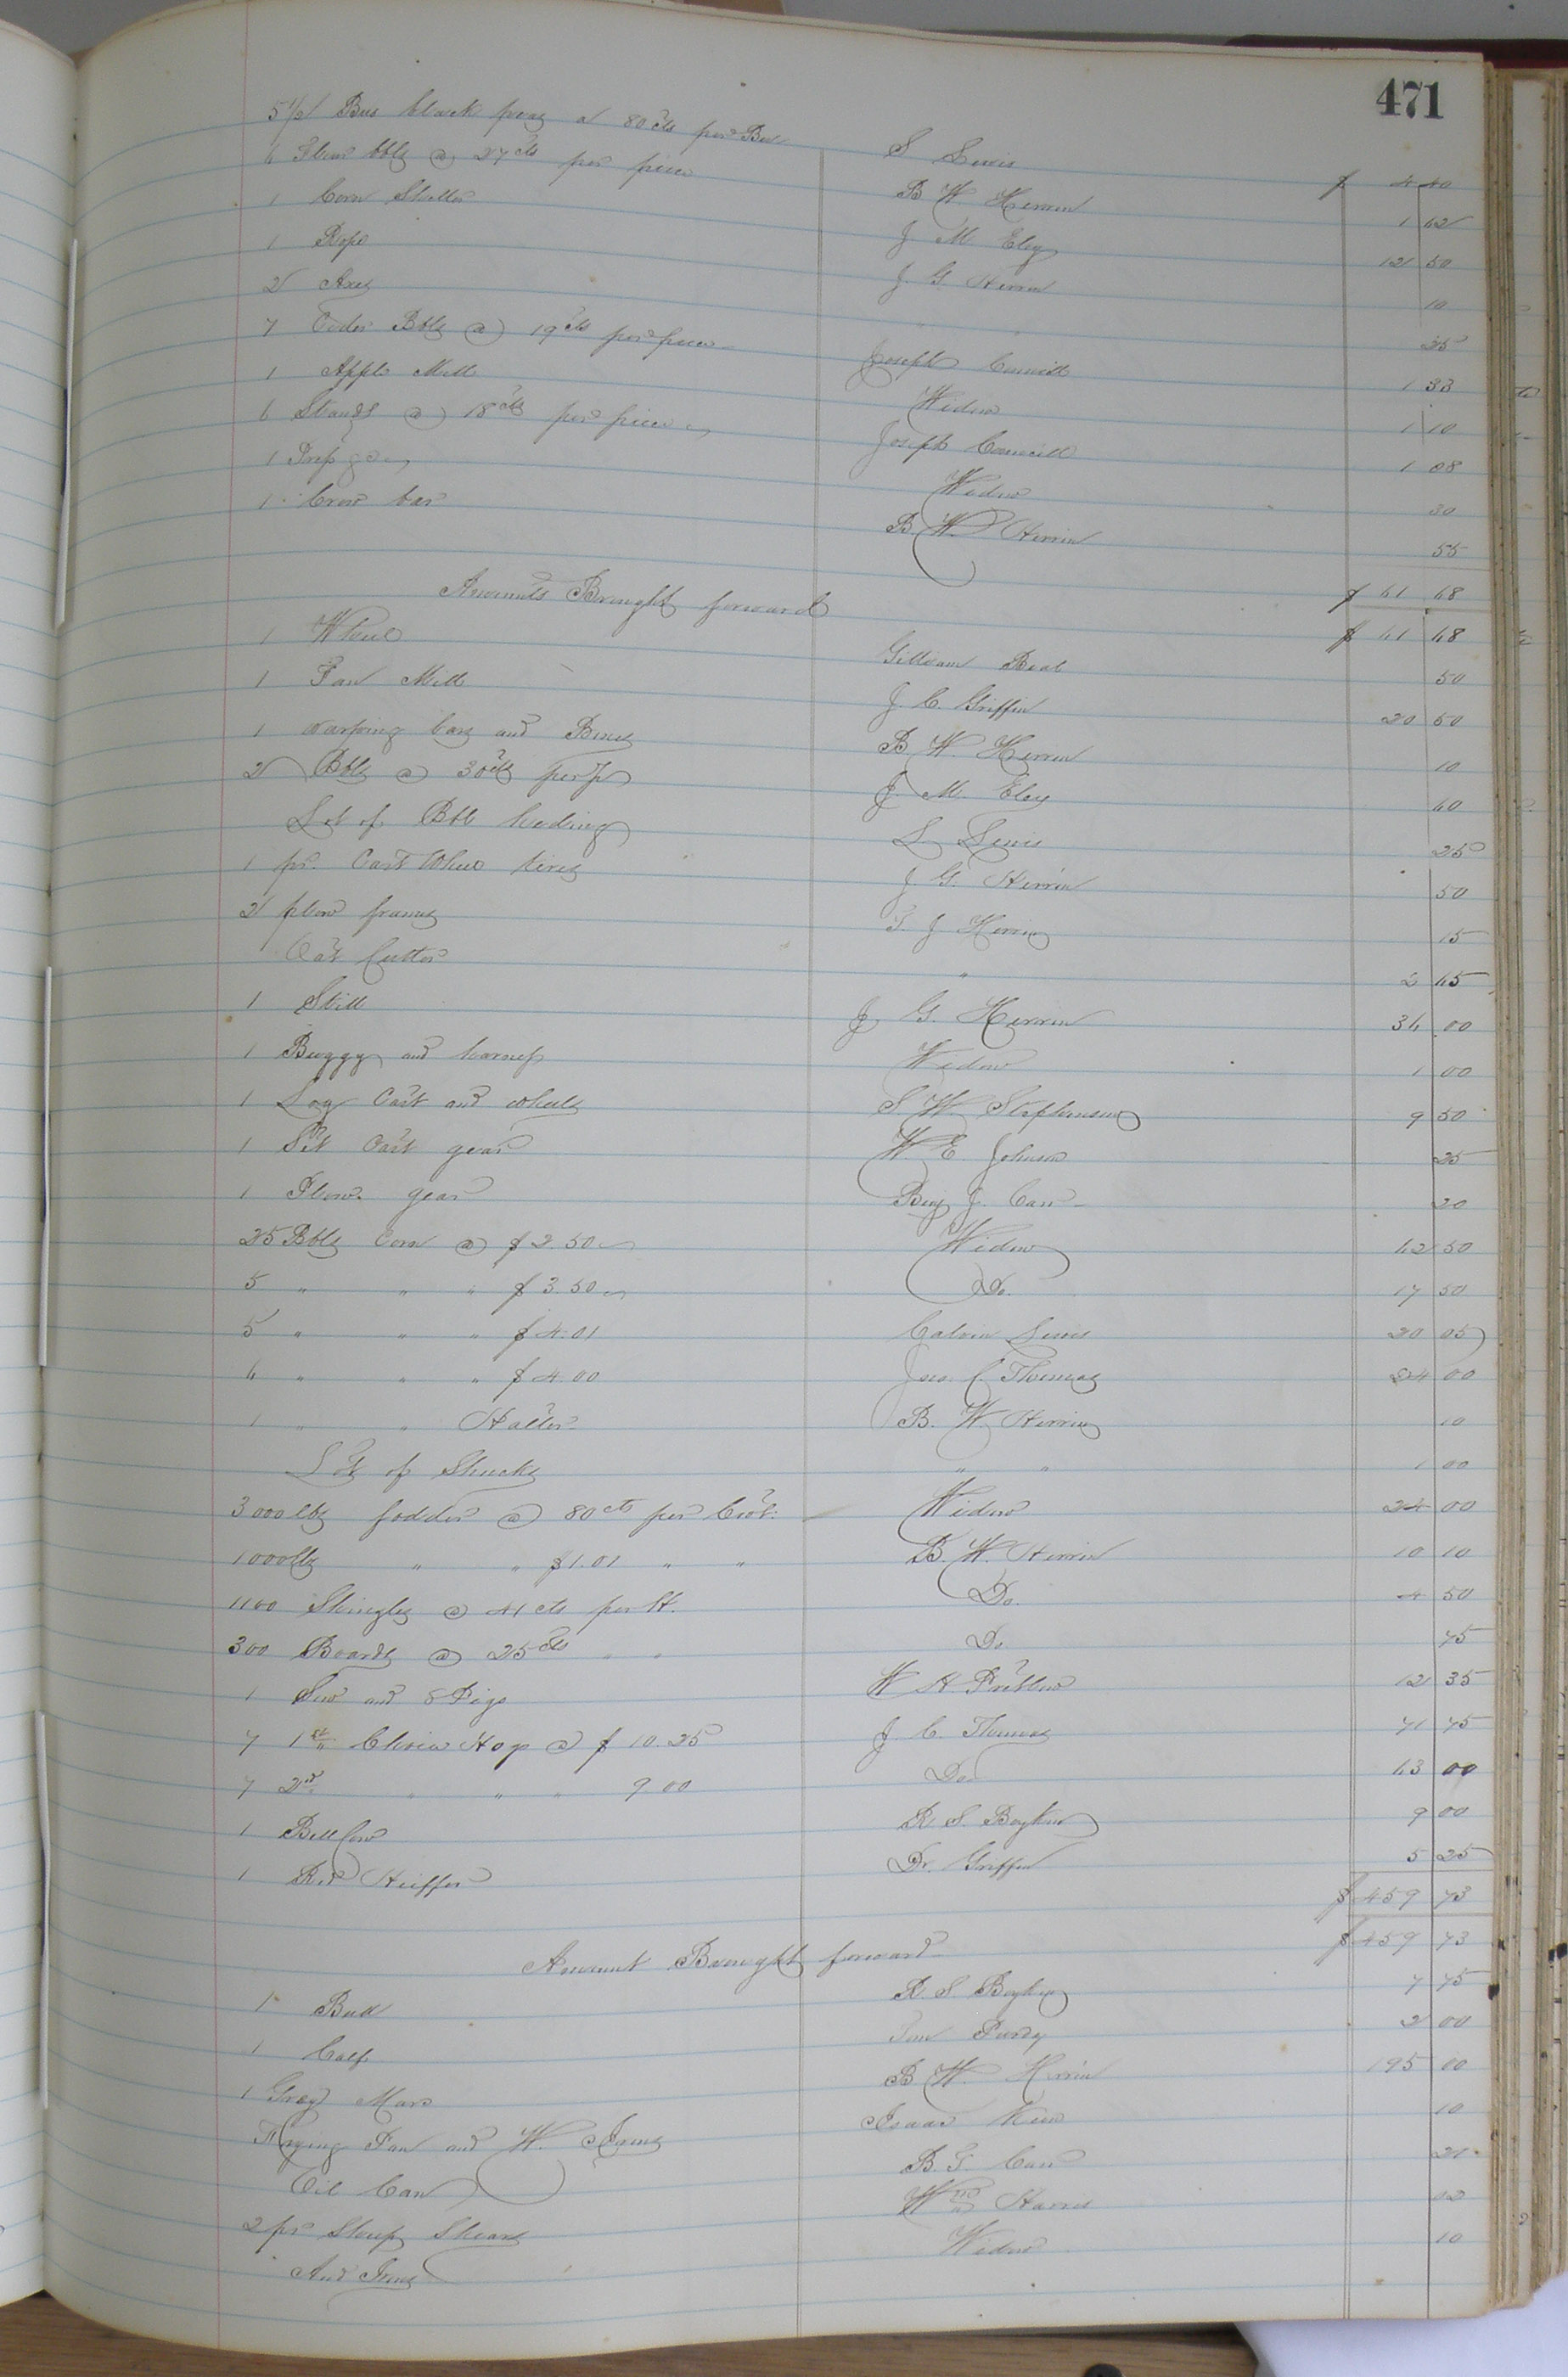 471
5 1/2 Bus black peas a 80 cts per Bus S Lewis $ 4 40
6 Flour bbls @ 27 cts per piece B W Herrin 1 62
1 Corn Sheller J M Eley 12 50
1 Rope J. G. Herrin 10
2 Axes " " 25
7 Cider Bbls @ 19 cts per piece Joseph Councill 1 33
1 Apple Mill Widow 1 10
6 Stands @ 18 cts per piece Joseph Councill 1 08
1 Widow 30
1 Crow bar B. W. Herrin 55
$ 61 68
Amounts Brought forward $ 61 68
1 Wheel Gilliam Beal 50
1 Fan Mill J. C. Griffin 20 50
1 warping bars and B. W. Herrin 10
2 Bbls @ 30 cts per p J. M. Eley 60
Lot of Bbl heading S Lewis 25
1 pr. Cart Wheel tires J. G. Herrin 50
2 plow frames T. J. Herrin 15
Oat Cutter " 2 65
1 Still J. G. Herrin 36 00
1 Buggy and harness Widow 1 00
1 Log Cart and wheels S W Stephenson 9 50
1 Set Cart gear W. E. Johnson 25
1 Plow gear Benj J. Carr 20
25 Bbls Corn @ $2.50 Widow 62 50
5 " " " $3.50 Do. 17 50
5 " " " $4.01 Calvin Lewis 20 05
6 " " " $4.00 Jno. C. Thomas 24 00
1 " " Halter B. W. Herrin 10
Lot of Shucks " " 1 00
3000 lbs fodder @ 80 cts per Cwt. Widow 24 00
1000 lbs " " $1.01 " " B. W. Herrin 10 10
1100 Shingles @ 41 cts per H. Do. 4 50
300 Boards @ 25 cts " " Do 75
1 Sow and 8 Pigs W H Pretlow 12 35
7 1st Choice Hog @ $ 10.25 J. C. Thomas 71 75
7 2nd " " " 9 00 Do. 63 00
1 Bell Cow R. S. Boykin 9 00
1 Red Heiffer Dr. Griffin 5 25
$ 459 73
Amount Brought forward $ 459 73
1 Bull R. S. Boykin 7 75
1 Calf Purdy 2 00
1 Gray Mare B. W. Herrin 195 00
Frying Pan and W. Irons Isaac 10
Oil Can B. G. Carr 21
2 pr Sheep Shears Wm Harris 02
And Irons Widow 10